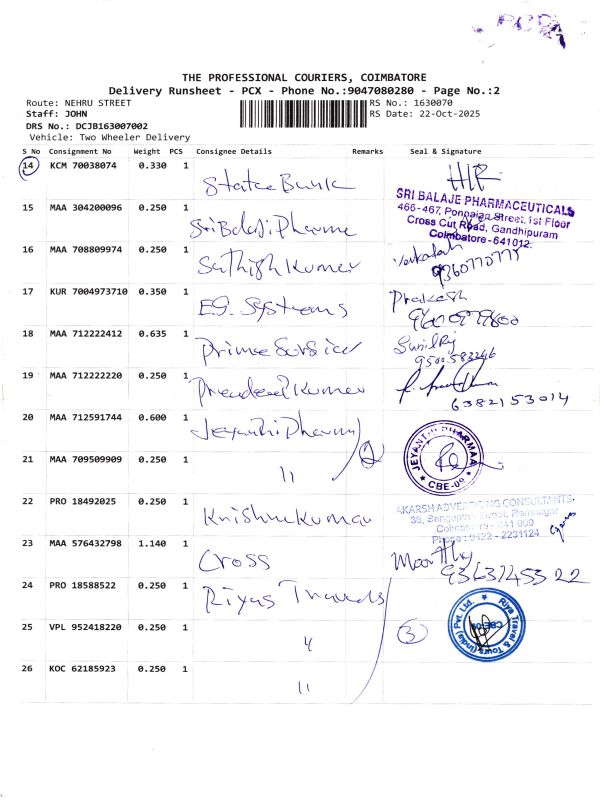 THE PROFESSIONAL COURIERS, COIMBATORE
Delivery Runsheet - PCX - Phone No.:9047080280 - Page No.:2
Route: NEHRU STREET RS No.: 1630070
Staff: JOHN RS Date: 22-Oct-2025
DRS No.: DCJB163007002
Vehicle: Two Wheeler Delivery
S No Consignment No Weight PCS Consignee Details Remarks Seal & Signature
14 KCM 70038074 0.330 1 State Bank
SRI BALAJE PHARMACEUTICALS
466-467, Ponnaian Street, 1st Floor
Cross Cut Road, Gandhipuram
Coimbatore - 641012
15 MAA 304200096 0.250 1 Sri Balaji Pharma
16 MAA 708809974 0.250 1 Sathish Kumar Venkatesh
17 KUR 7004973710 0.350 1 E.G. Systems Prakash
18 MAA 712222412 0.635 1 Prime Service Sunil Raj
9500583246
19 MAA 712222220 0.250 1 Kumar
6382153014
20 MAA 712591744 0.600 1 Jeyanthi Pharma
JEYANTHI PHARMAA
CBE-09
21 MAA 709509909 0.250 1 11 2
22 PRO 18492025 0.250 1 Krishna Kumar
AKARSH ADVERTISING CONSULTANTS
38, Sengupta Street, Ramnagar
Coimbatore - 641 009
Phone : 0422 - 2231124
23 MAA 576432798 1.140 1 Cross Moorthy
9363745522
24 PRO 18588522 0.250 1 Riyas Travels
Riya Travel & Tours (India) Pvt. Ltd.
25 VPL 952418220 0.250 1 4 3
26 KOC 62185923 0.250 1 11